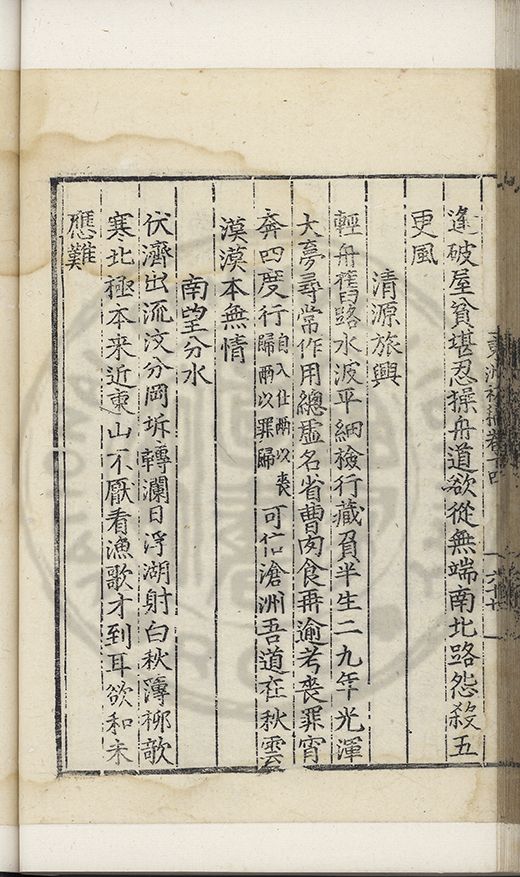 逢破屋貧堪忍操舟道欲從無端南北路怨殺五
更風
清源旅興
輕舟舊路水波平細檢行藏負半生二九年光渾
大夢尋常作用總虛名省曹肉食再逾考喪罪宵
奔四度行自入仕兩以喪歸兩以罪歸可信滄洲吾道在秋雲
漠漠本無情
南望分水
伏濟出流汶分岡坼轉瀾日浮湖射白秋薄柳歌
寒北極本来近東山不厭看漁歌才到耳欲和未
應難
卷四